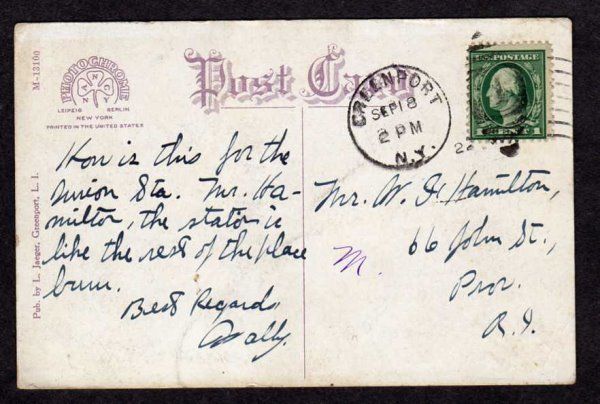 M-13100
PHOTOCHROME
A N C Y T
LEIPZIG BERLIN
NEW YORK
PRINTED IN THE UNITED STATES
Post Card
GREENPORT
SEP 18
2 PM
N.Y.
U.S. POSTAGE
1 CENT 1
Pub. by L. Jaeger, Greenport, L. I.
How is this for the
Union Sta. Mr. Ha-
milton, the station is
like the rest of the place
bum.
Best Regards
Wally.
Mr. W. F. Hamilton,
66 John St.,
Prov.
R.I.
M.